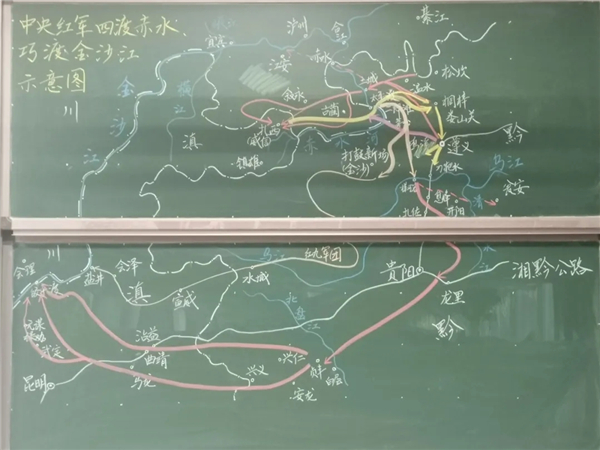 中央红军四渡赤水、
巧渡金沙江
示意图
泸州
宜宾
綦江
川
金
沙
江
横
江
滇
叙永
古蔺
赤水
土城
松坎
桐梓
娄山关
遵义
黔
扎西
(威信)
镇雄
赤
水
河
打鼓新场
(金沙)
乌江
瓮安
开阳
息烽
川
会理
盐井
会泽
滇
宣威
水城
乌
江
红九军团
贵阳
湘黔公路
龙里
黔
北
盘
江
沾益
曲靖
马龙
昆明
武定
兴义
兴仁
安龙
贞丰